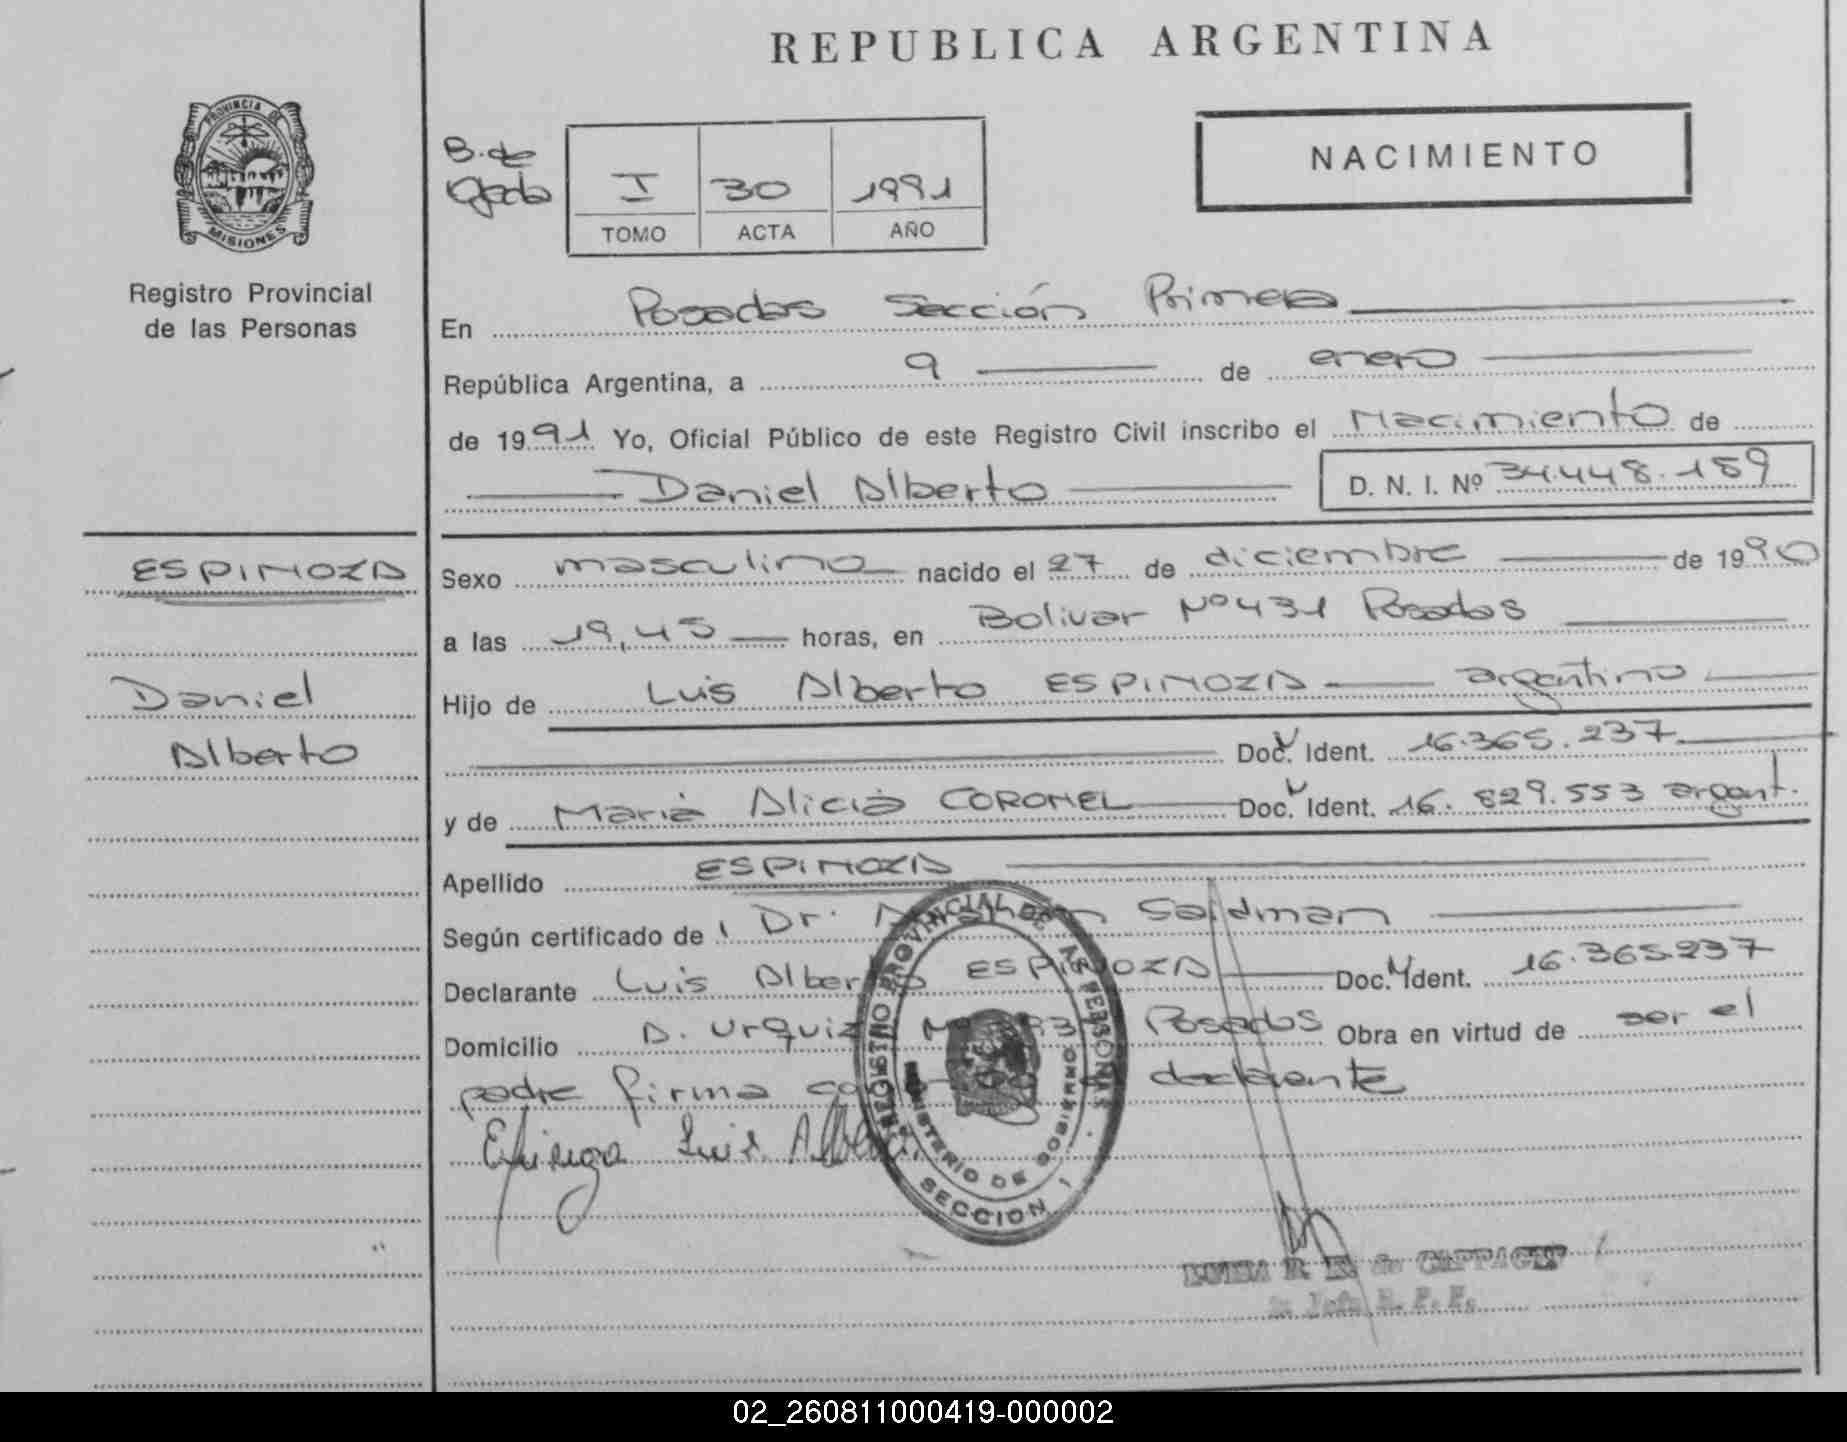 REPUBLICA ARGENTINA
PROVINCIA DE
MISIONES
Registro Provincial
de las Personas
B. de
I 30 1991
TOMO ACTA AÑO
NACIMIENTO
En Posadas Sección Primera
República Argentina, a 9 de enero
de 1991 Yo, Oficial Público de este Registro Civil inscribo el Nacimiento de
Daniel Alberto D. N. I. Nº 34.448.189
ESPINOZA
Daniel
Alberto
Sexo masculino nacido el 27 de diciembre de 1990
a las 19,45 horas, en Bolivar Nº 431 Posadas
Hijo de Luis Alberto ESPINOZA argentino
Doc. Ident. 16.365.237
y de Maria Alicia CORONEL Doc. Ident. 16.829.553 argent.
Apellido ESPINOZA
Según certificado de Dr.
Declarante Luis Alberto ESPINOZA Doc. Ident. 16.365.237
Domicilio D. Urquiza Posadas Obra en virtud de ser el
padre firma declarante
Espinoza Luis Alberto
REGISTRO PROVINCIAL DE LAS PERSONAS
MINISTERIO DE GOBIERNO
SECCION 1
LUISA
02_260811000419-000002